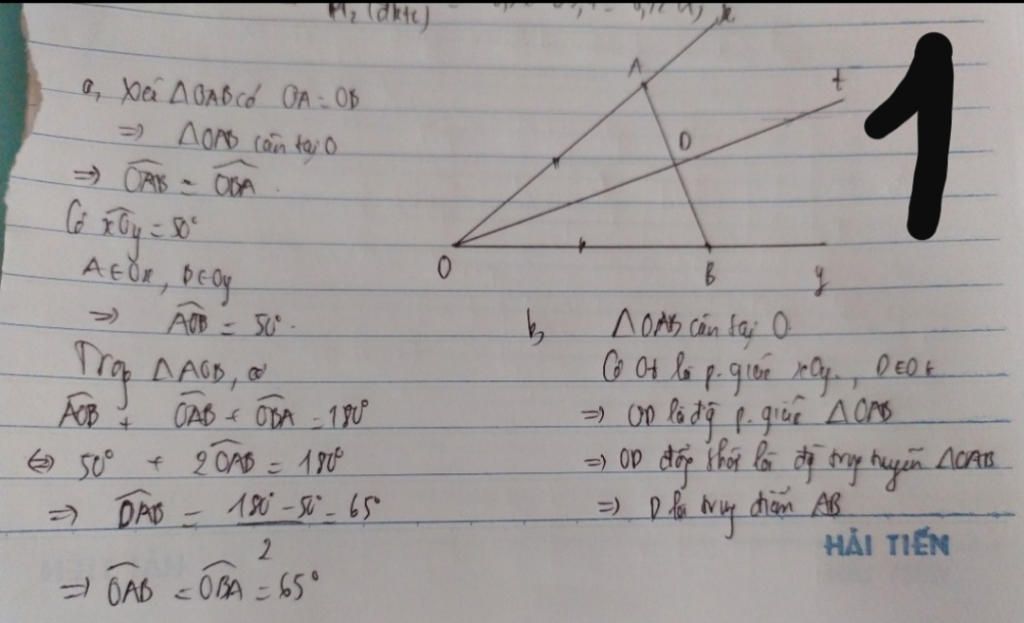 M₂ (đktc) =
a, Xét △OAB có OA = OB
⇒ △OAB cân tại O
⇒ OAB = OBA.
Có xOy = 50°
A ∈ Ox, B ∈ Oy
⇒ AOB = 50°.
Trog △AOB, có
AOB + OAB + OBA = 180°
⇔ 50° + 2OAB = 180°
⇒ OAB = 180° - 50° = 65°
2
⇒ OAB = OBA = 65°
x
A
t
D
O
B
y
1
b, △OAB cân tại O
Có Ot là p. giác xOy, D ∈ Ot
⇒ OD là đg p. giác △OAB
⇒ OD đồg thời là đg trug tuyến △OAB
⇒ D là trug điểm AB
HẢI TIẾN